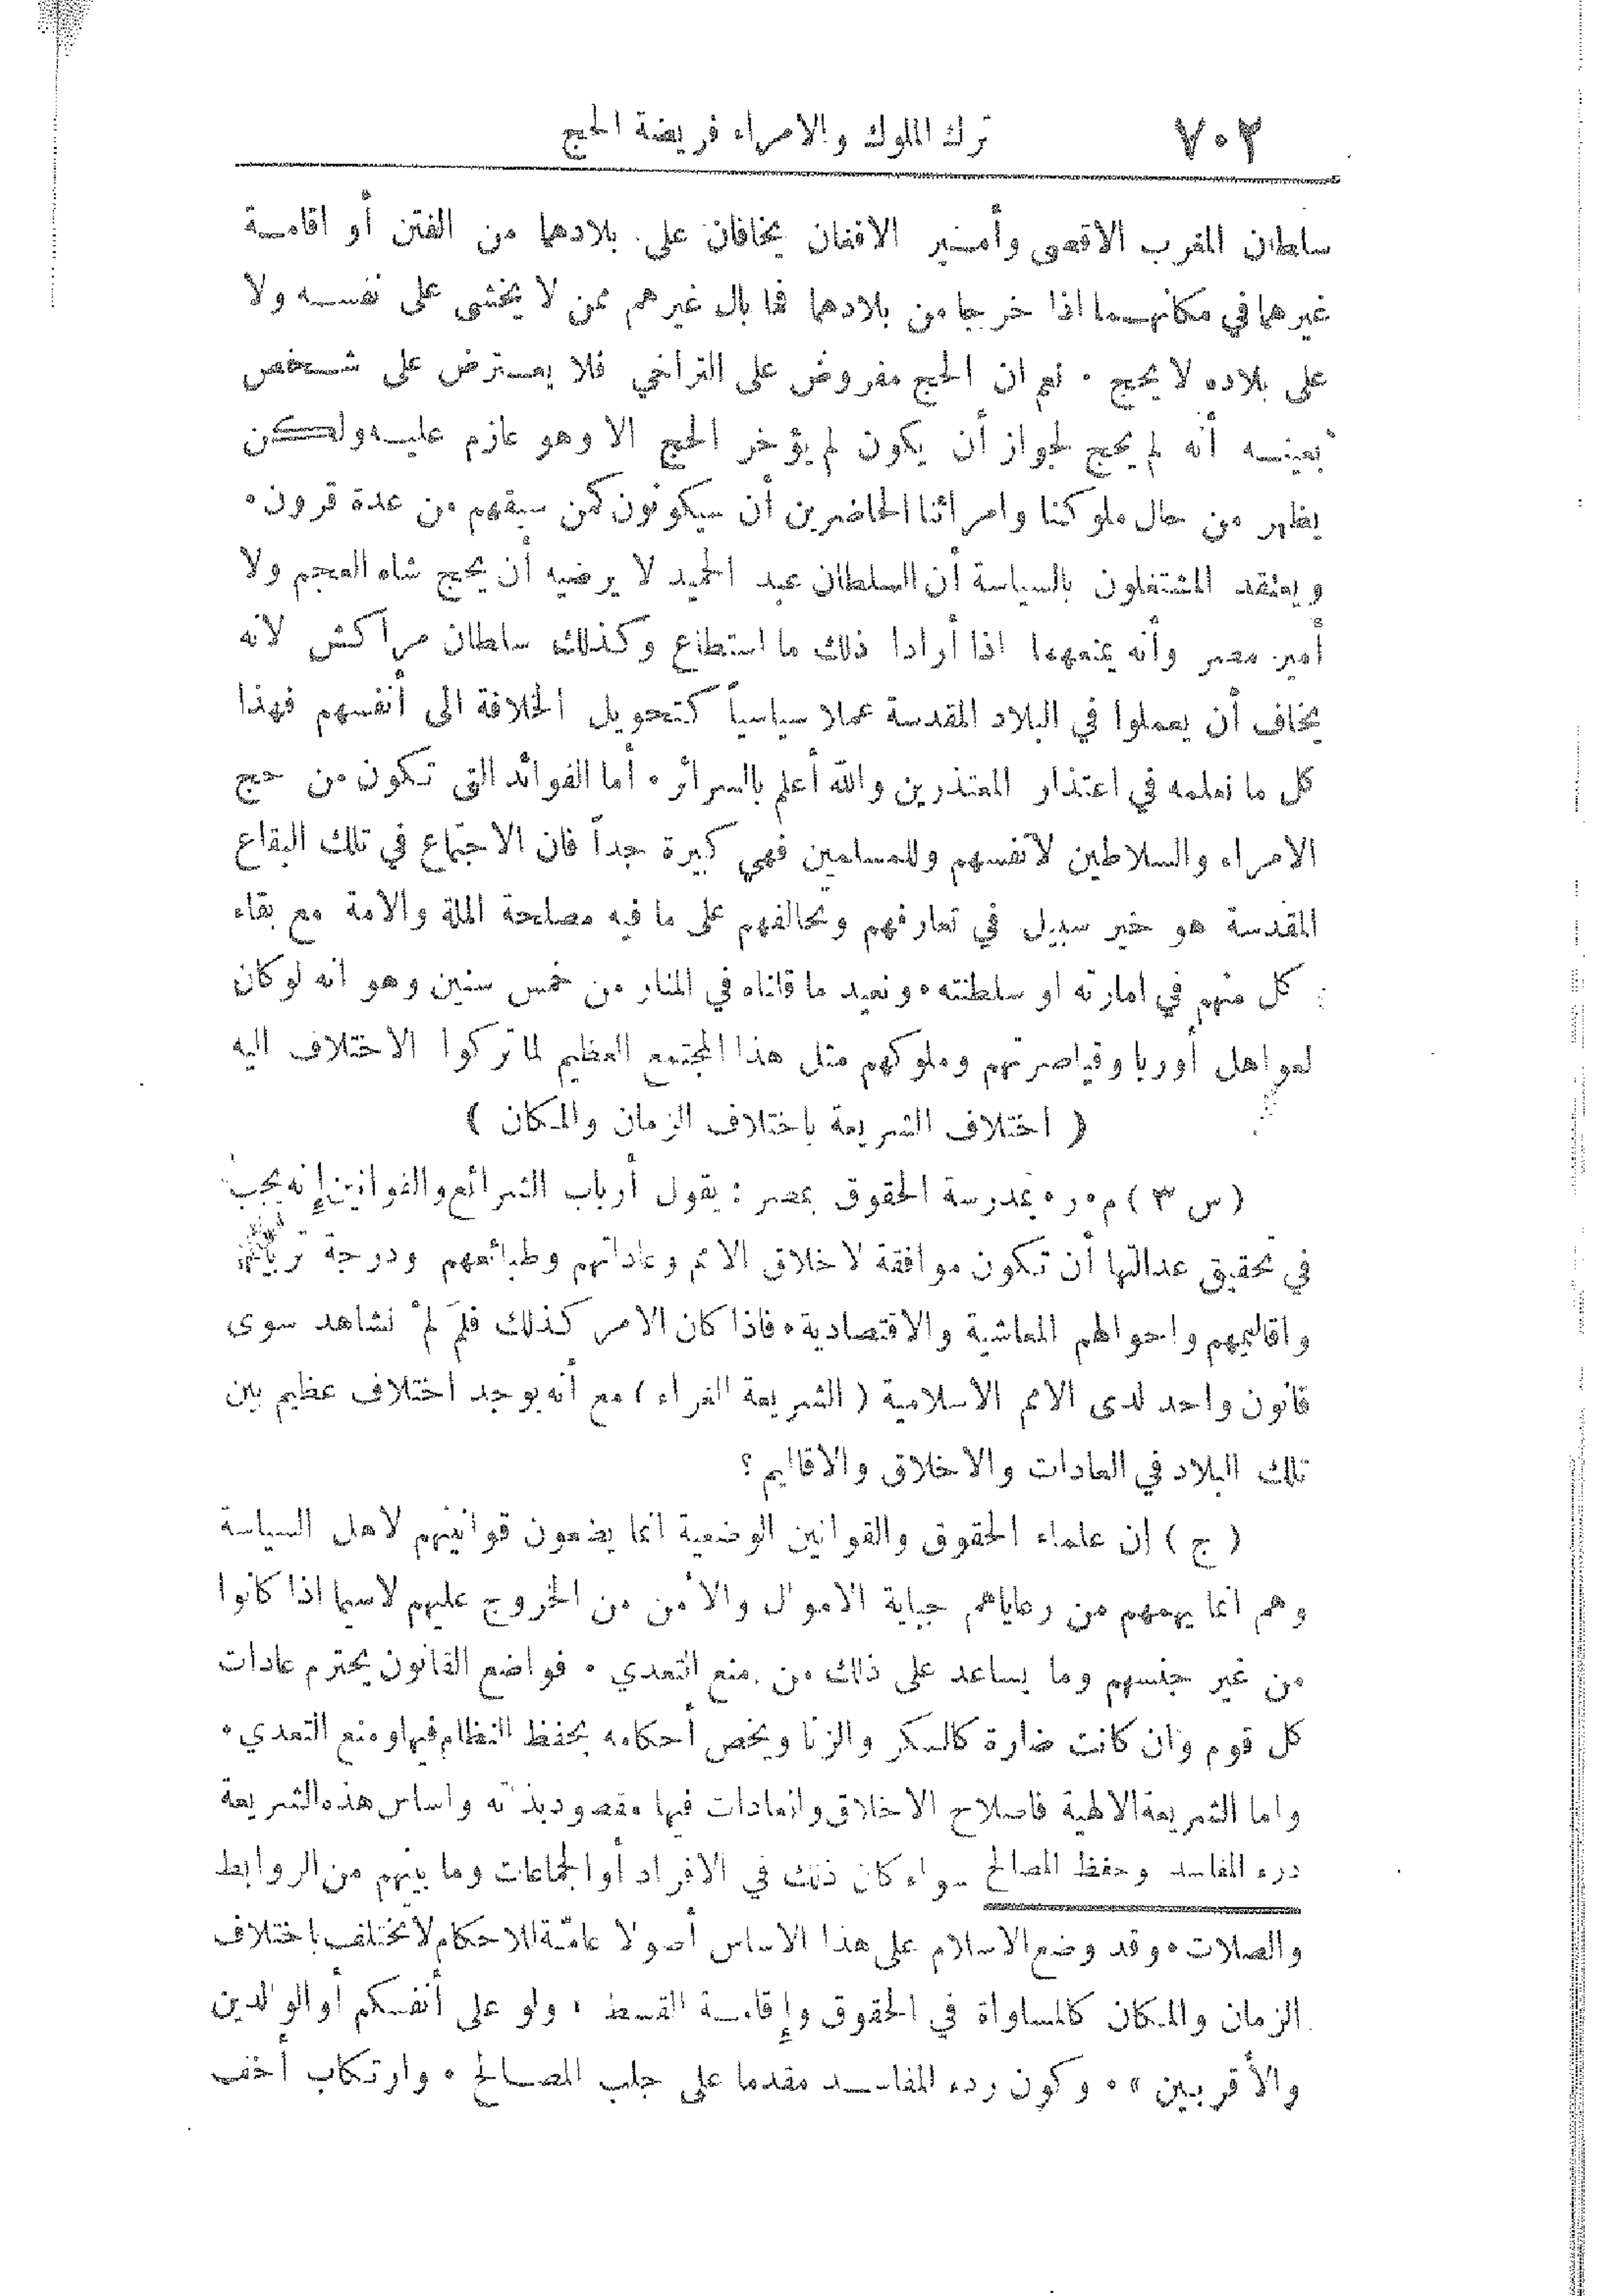 ٧٠٢ ترك الملوك والامراء فريضة الحج
سلطان المغرب الاقصى وأمير الافغان يخافان على بلادهما من الفتن أو اقامة
غيرهما في مكانهما اذا خرجا من بلادهما فما بال غيرهم ممن لا يخشى على نفسه ولا
على بلاده لا يحج . نعم ان الحج مفروض على التراخي فلا يعترض على شخص
بعينه أنه لم يحج لجواز أن يكون لم يؤخر الحج الا وهو عازم عليه ولكن
يظهر من حال ملوكنا وامرائنا الحاضرين أن سيكونون كمن سبقهم من عدة قرون .
ويعتقد المشتغلون بالسياسة أن السلطان عبد الحميد لا يرضيه أن يحج شاه العجم ولا
أمير مصر وأنه يمنعهما اذا أرادا ذلك ما استطاع وكذلك سلطان مراكش لانه
يخاف أن يعملوا في البلاد المقدسة عملا سياسياً كتحويل الخلافة الى أنفسهم فهذا
كل ما نعلمه في اعتذار المعتذرين والله أعلم بالسرائر . أما الفوائد التي تكون من حج
الامراء والسلاطين لأنفسهم وللمسلمين فهي كبيرة جداً فان الاجتماع في تلك البقاع
المقدسة هو خير سبيل في تعارفهم وتحالفهم على ما فيه مصلحة الملة والامة مع بقاء
كل منهم في امارته او سلطنته . ونعيد ما قلناه في المنار من خمس سنين وهو انه لو كان
لعواهل أوربا وقياصرتهم وملوكهم مثل هذا المجتمع العظيم لما تركوا الاختلاف اليه
( اختلاف الشريعة باختلاف الزمان والمكان )
( س ٣ ) م . ر . بمدرسة الحقوق بمصر : يقول أرباب الشرائع والقوانين إنه يجب
في تحقيق عدالتها أن تكون موافقة لاخلاق الامم وعاداتهم وطبائعهم ودرجة تربيتهم
واقاليمهم واحوالهم المعاشية والاقتصادية . فاذا كان الامر كذلك فلمَ لمْ نشاهد سوى
قانون واحد لدى الامم الاسلامية ( الشريعة الغراء ) مع أنه يوجد اختلاف عظيم بين
تلك البلاد في العادات والاخلاق والاقاليم ؟
( ج ) إن علماء الحقوق والقوانين الوضعية انما يضعون قوانينهم لاهل السياسة
وهم انما يهمهم من رعاياهم جباية الاموال والأمن من الخروج عليهم لاسيما اذا كانوا
من غير جنسهم وما يساعد على ذلك من منع التعدي . فواضع القانون يحترم عادات
كل قوم وان كانت ضارة كالسكر والزنا ويخص أحكامه بحفظ النظام فيها ومنع التعدي .
واما الشريعة الالهية فاصلاح الاخلاق والعادات فيها مقصود بذاته واساس هذه الشريعة
درء المفاسد وحفظ المصالح سواء كان ذلك في الافراد أو الجماعات وما بينهم من الروابط
والصلات . وقد وضع الاسلام على هذا الاساس أصولا عامّة للاحكام لا تختلف باختلاف
الزمان والمكان كالمساواة في الحقوق وإقامة القسط ، ولو على أنفسكم أو الوالدين
والأقربين » . وكون درء المفاسد مقدما على جلب المصالح . وارتكاب أخف